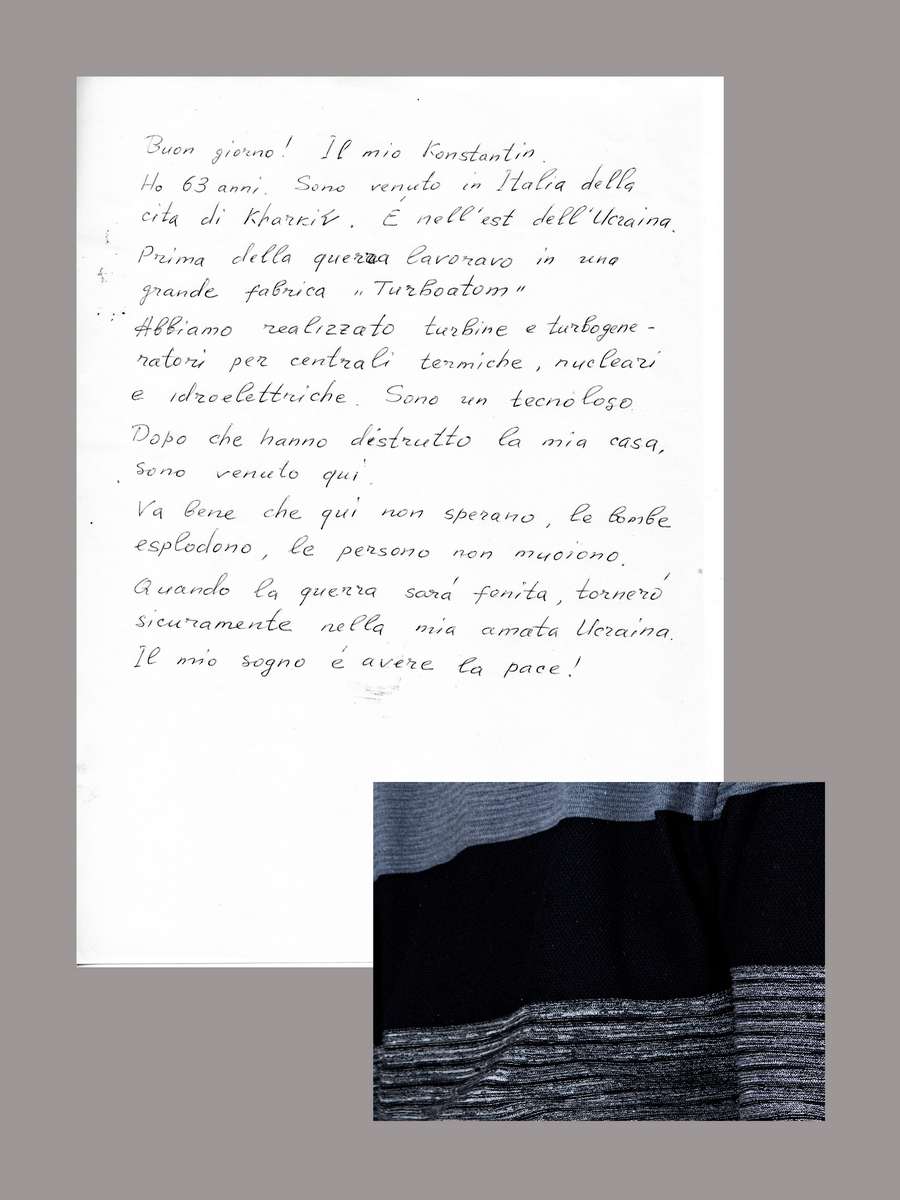 Buon giorno! Il mio Konstantin.
Ho 63 anni. Sono venuto in Italia della
cita di Kharkiv. É nell'est dell'Ucraina.
Prima della querra lavoravo in una
grande fabrica „Turboatom"
Abbiamo realizzato turbine e turbogene-
ratori per centrali termiche, nucleari
e idroelettriche. Sono un tecnólogo.
Dopo che hanno distrutto la mia casa,
sono venuto qui.
Va bene che qui non sperano, le bombe
esplodono, le persono non muoiono.
Quando la querra sará fenita, torneró
sicuramente nella mia amata Ucraina.
Il mio sogno é avere la pace!